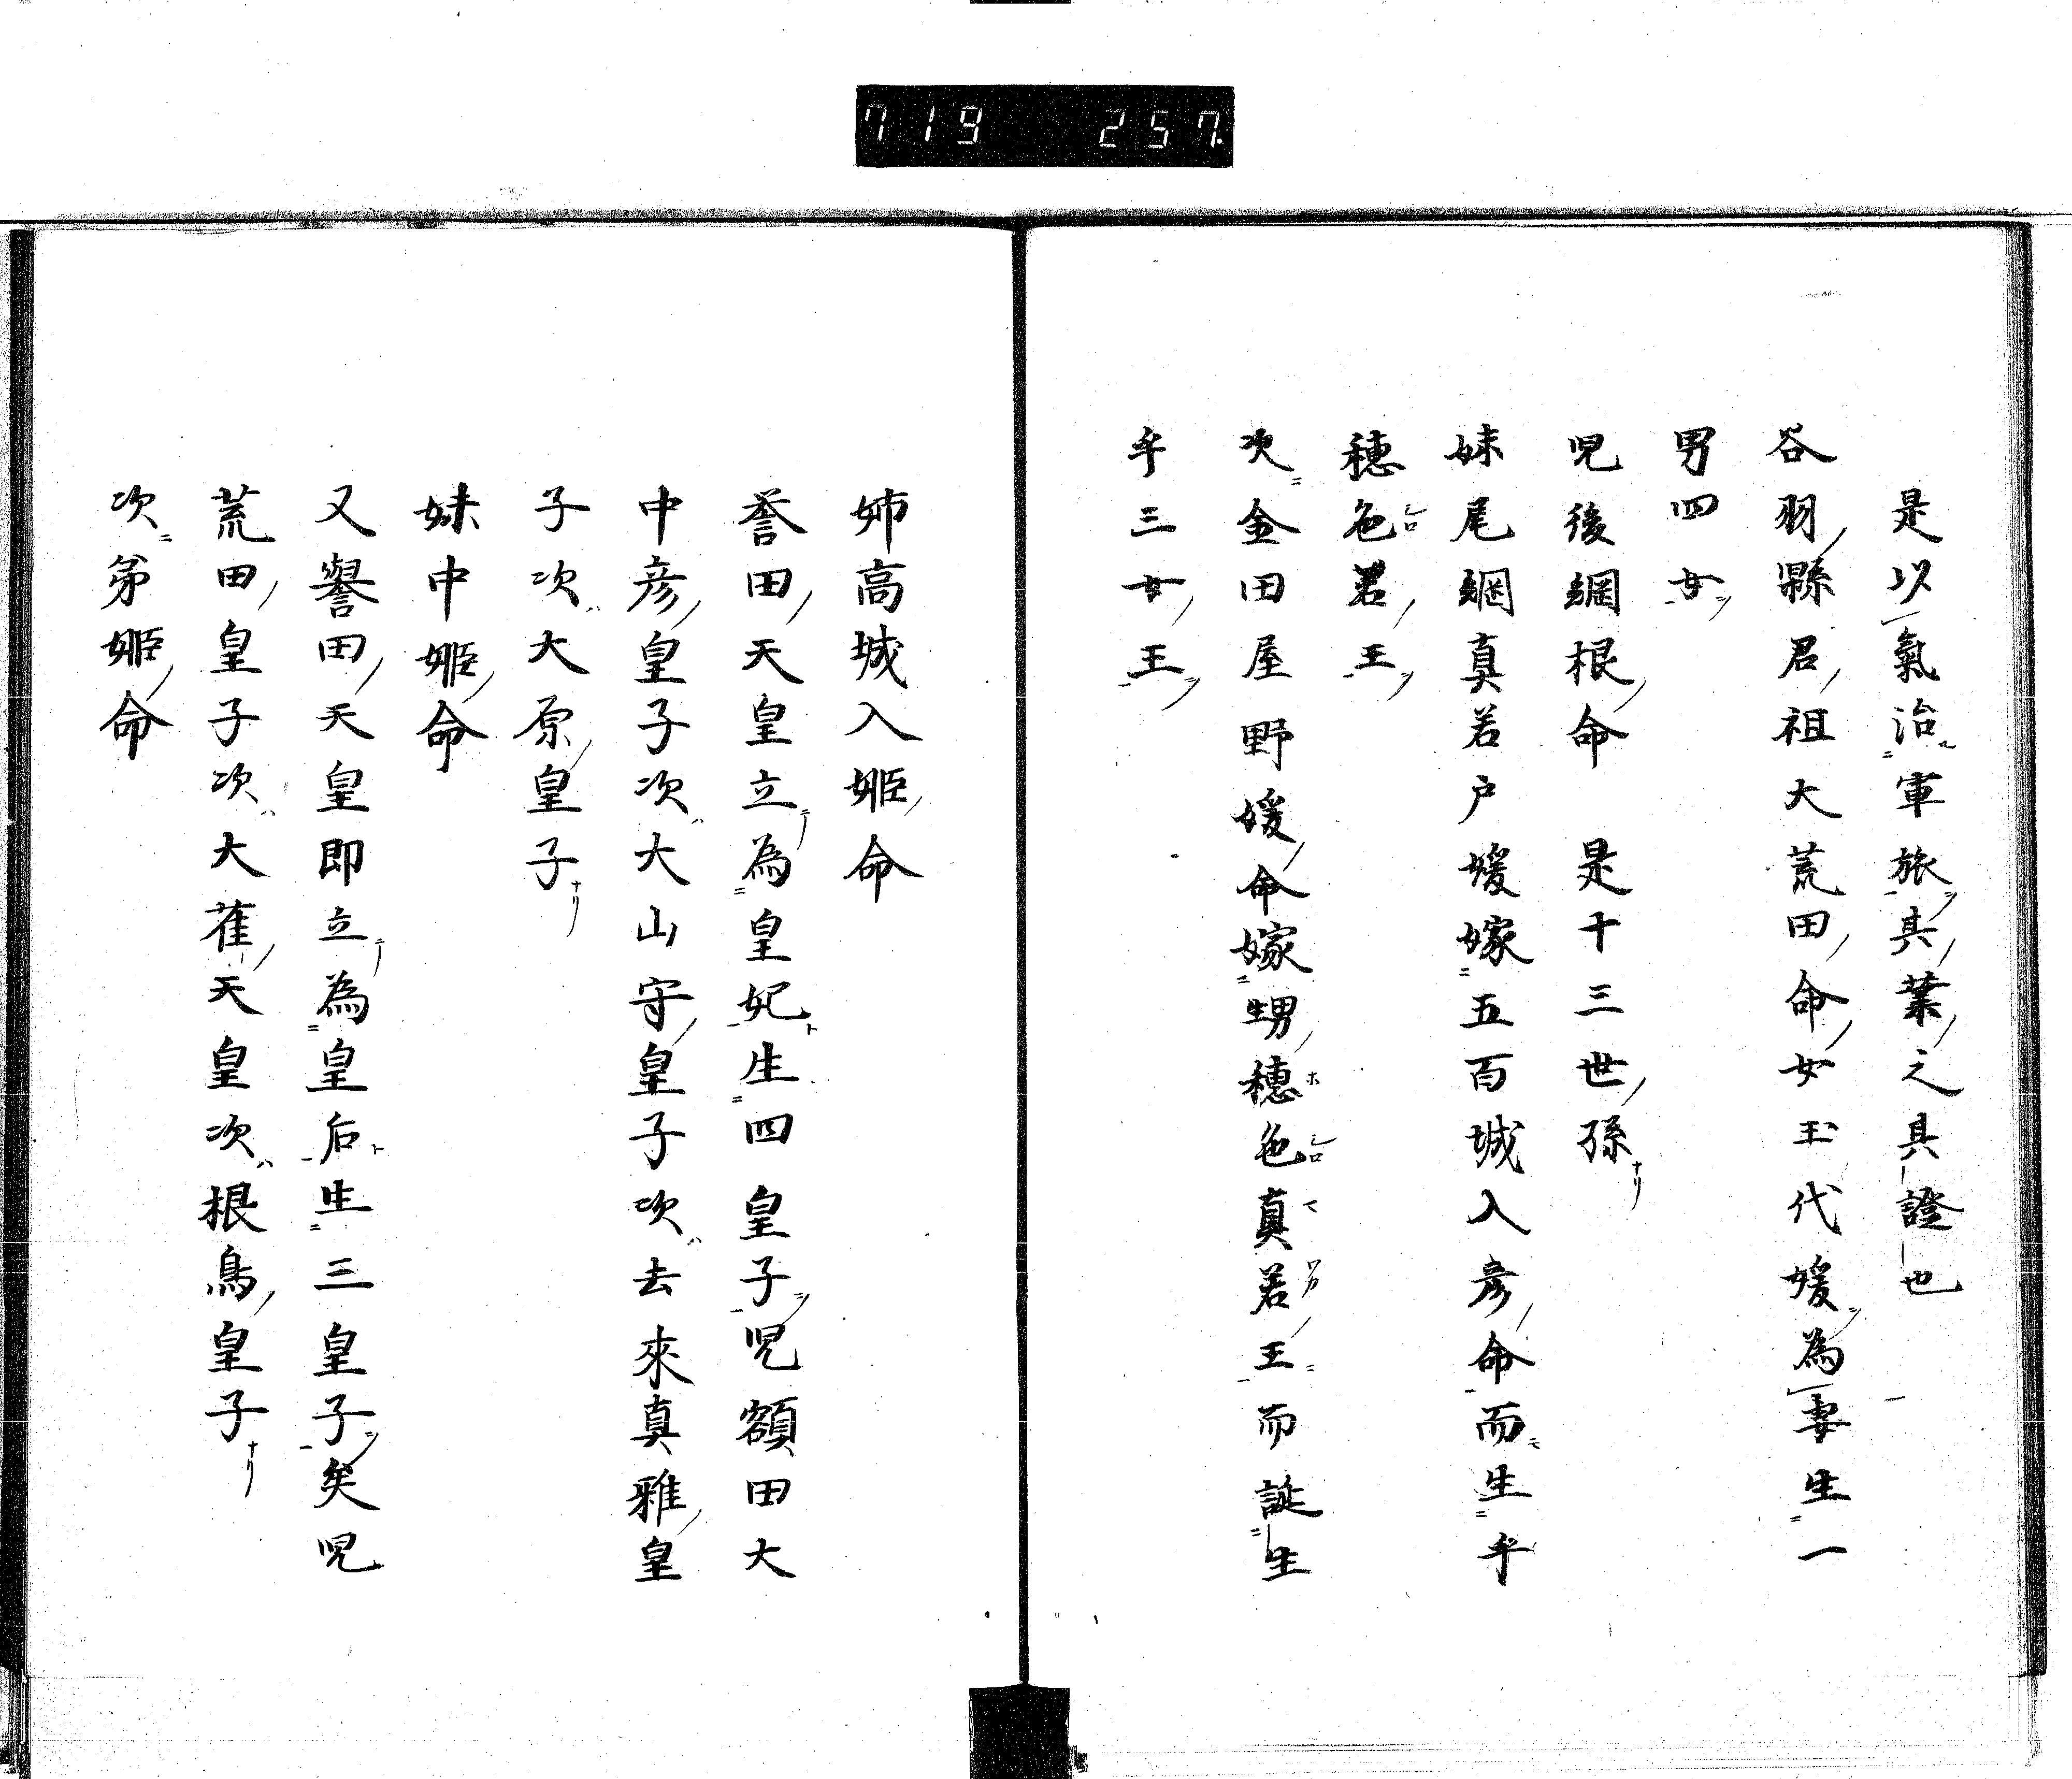 719 257
是以氣治軍旅其業之具證也
谷羽縣君祖大荒田命女玉代媛為妻生一
男四女
児後綱根命 是十三世孫ナリ
妹尾綱真若戸媛嫁五百城入彦命而生乎
穂色君王
次金田屋野媛命嫁甥穂色真若王而誕生
乎三女王
姉高城入姫命
誉田天皇立為皇妃生四皇子児額田大
中彦皇子次大山守皇子次去來真雅皇
子次大原皇子ナリ
妹中姫命
又譽田天皇即立為皇后生三皇子矣児
荒田皇子次大雀天皇次根鳥皇子ナリ
次弟姫命